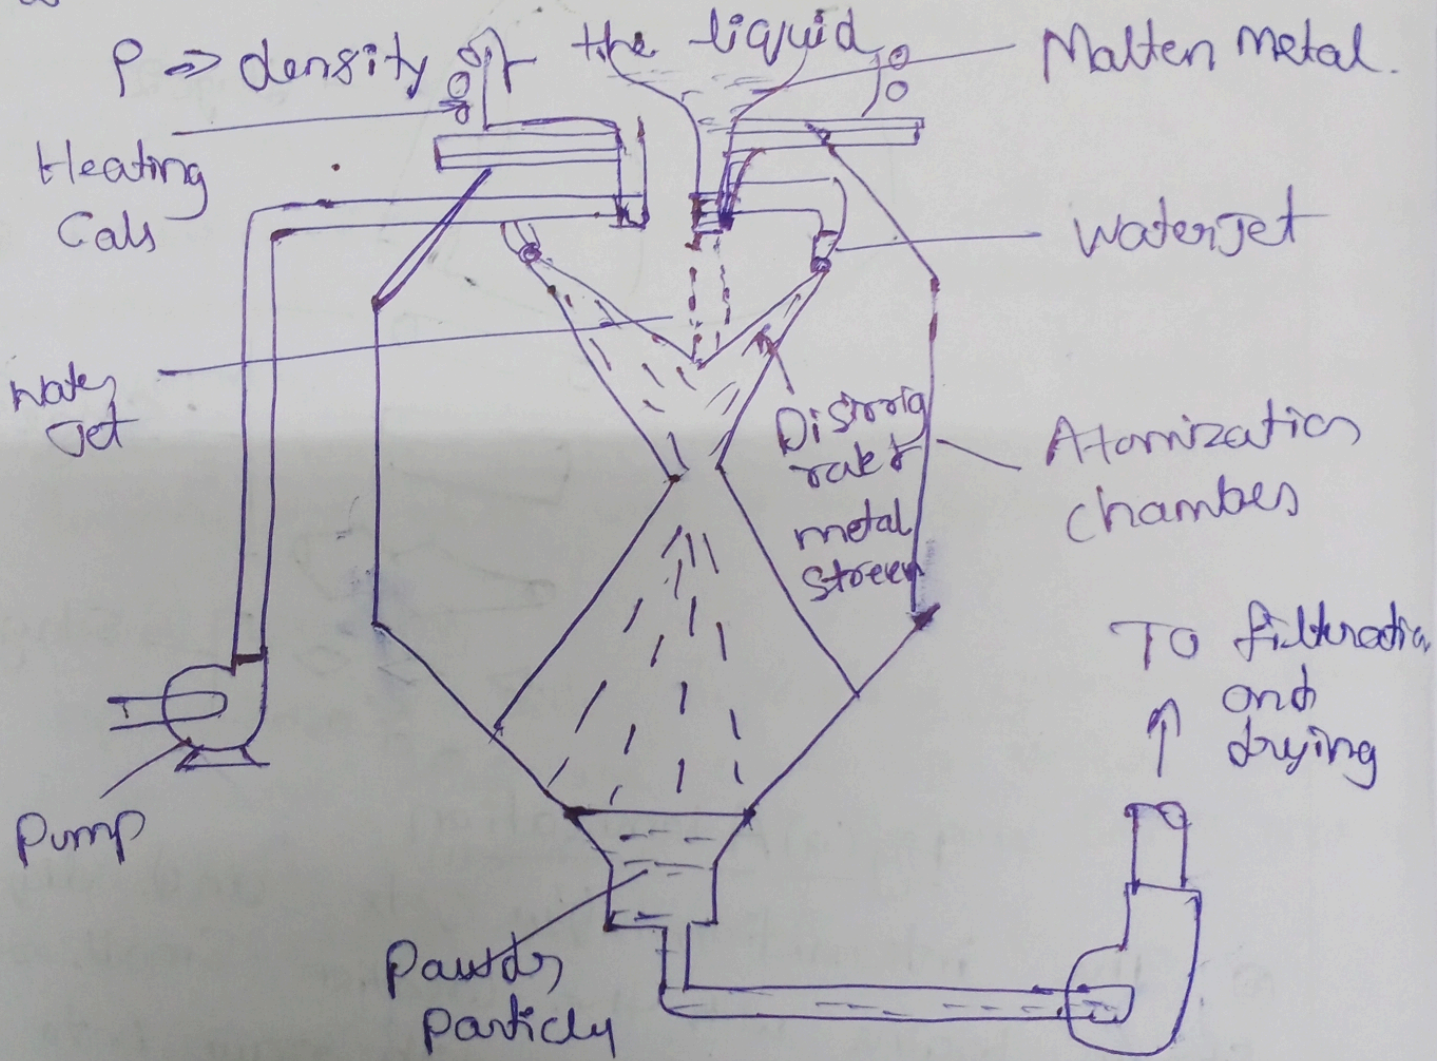 ρ => density of the liquid
Malten metal.
Heating
Cals
Waterjet
Water
Jet
Disinrig
raket
metal
streen
Atomization
chamber
To filteratio
and
drying
Pump
Pawder
Particly